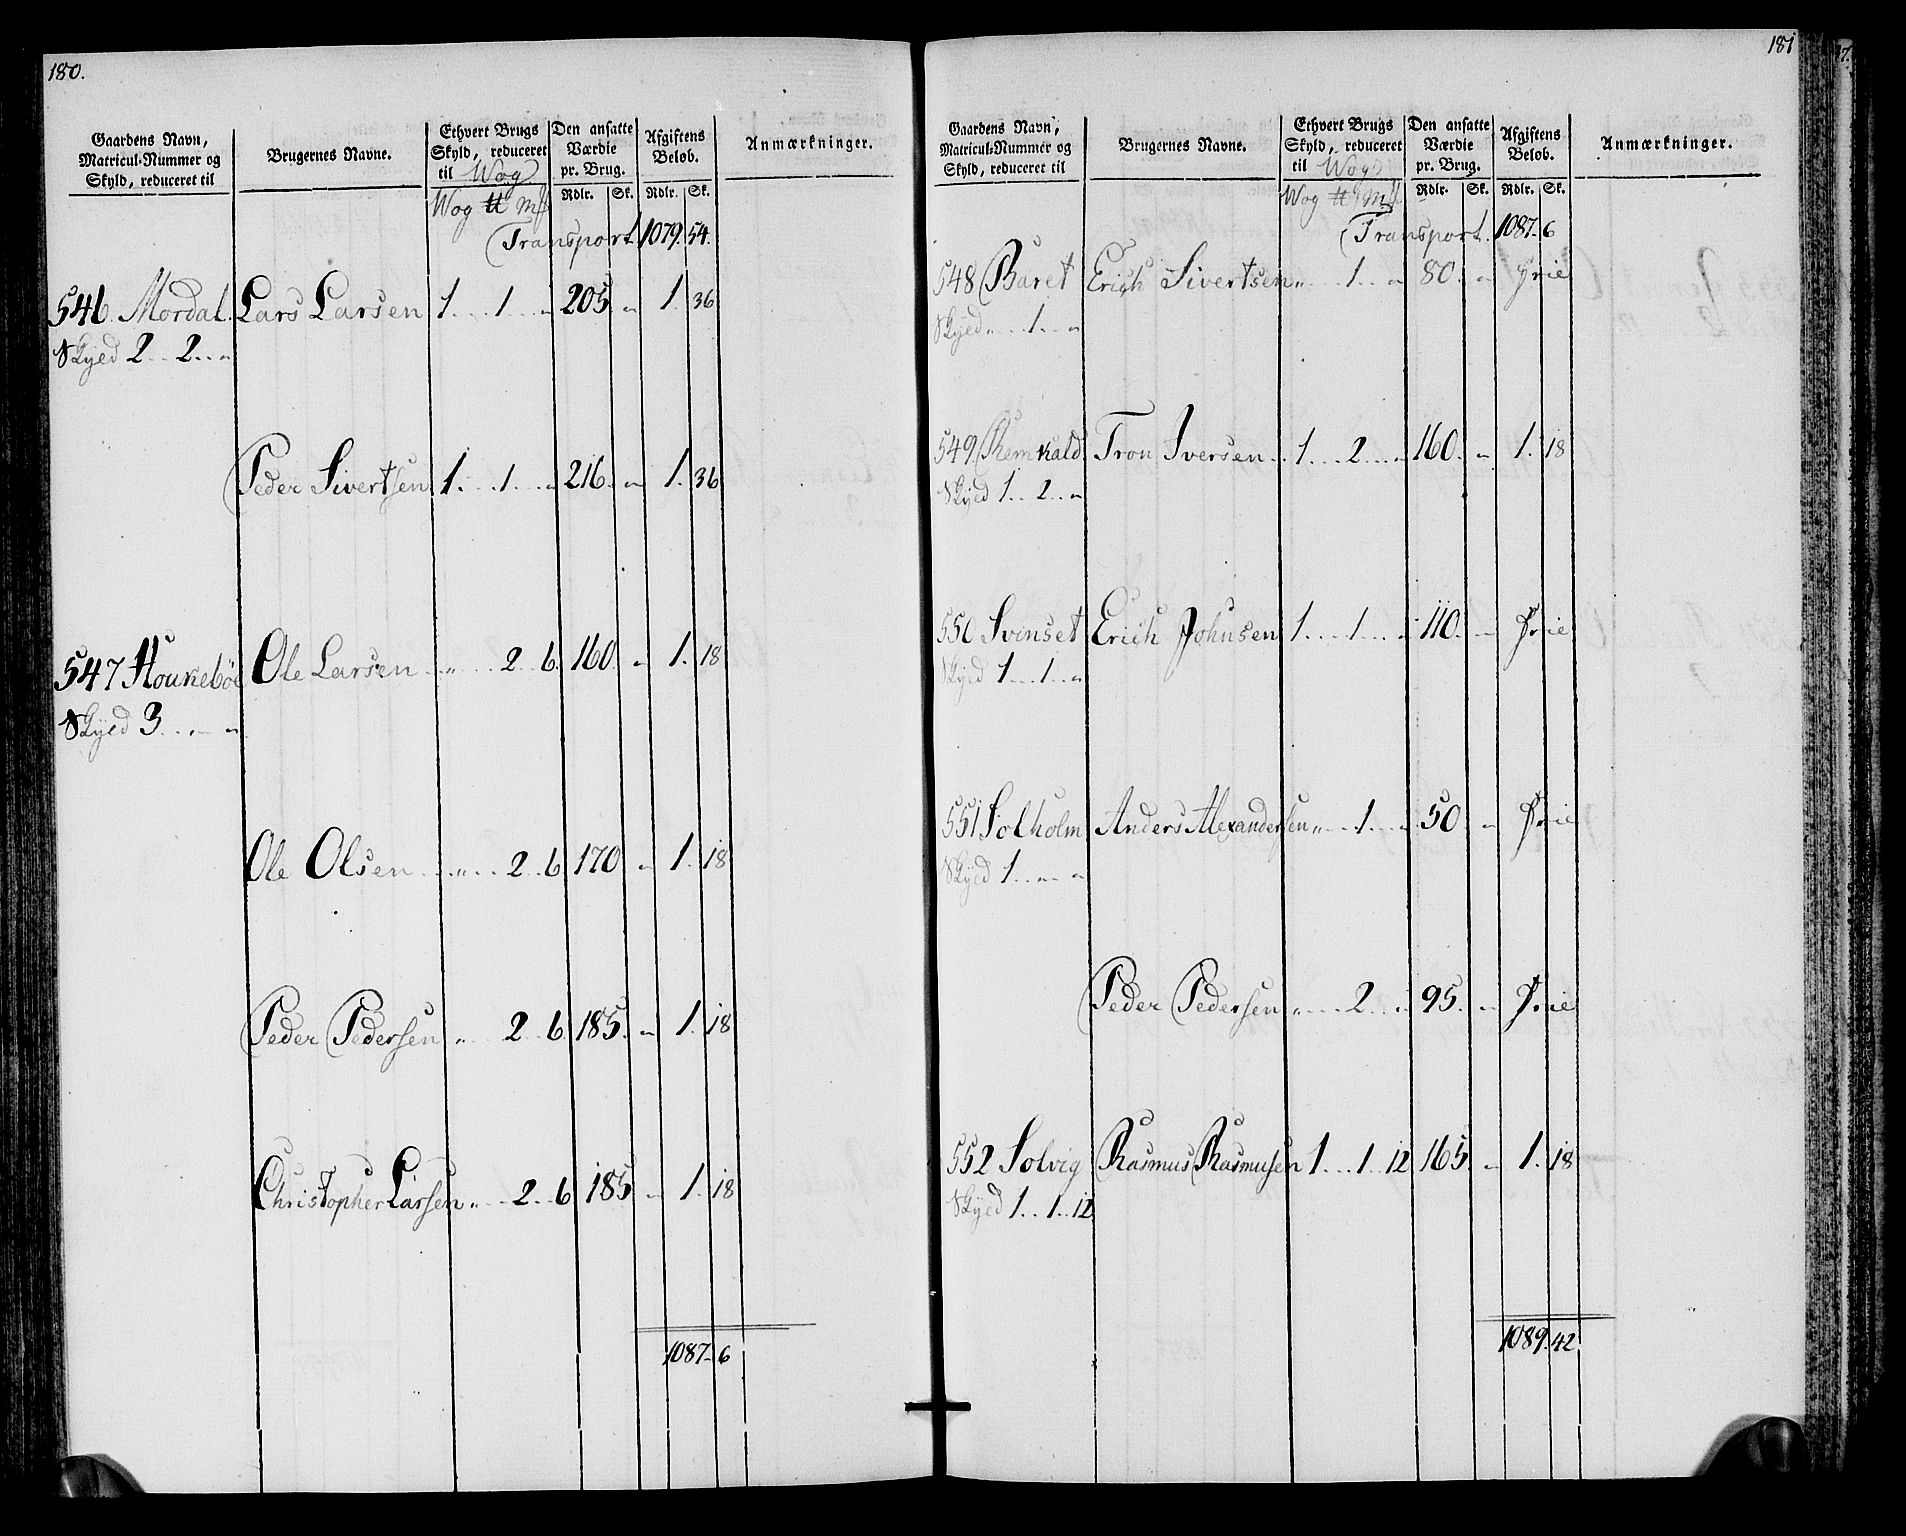 180.
Gaardens Navn, Matricul-Nummer og Skyld, reduceret til
Brugernes Navne.
Ethvert Brugs Skyld, reduceret til Wog
Den ansatte Værdie pr. Brug.
Afgiftens Beløb.
Anmærkninger.
Wog ℔ Mk Rdlr. Sk. Rdlr. Sk.
Transport 1079. 54.
546. Mordal. Lars Larsen 1....1...„ 205. „ 1. 36
Skyed 2...2...„
Peder Sivertsen 1....1...„ 216. „ 1. 36
547 Houkebøe Ole Larsen „....2..6. 160. „ 1. 18
Skyed 3...„..„
Ole Olsen „...2..6 170 „ 1. 18
Peder Pedersen „...2..6. 185. „ 1. 18
Christopher Larsen „...2..6 185 „ 1. 18
1087. 6
181
Gaardens Navn, Matricul-Nummer og Skyld, reduceret til
Brugernes Navne.
Ethvert Brugs Skyld, reduceret til Wog
Den ansatte Værdie pr. Brug.
Afgiftens Beløb.
Anmærkninger.
Wog ℔ Mk Rdlr. Sk. Rdlr. Sk.
Transport. 1087. 6
548 Baret Erich Sivertsen „....1...„ 80. „ Frie
Skyed „...1...„
549. Tron Iversen 1....2...„ 160. „ 1. 18
Skyed 1...2...„
550 Svinset Erich Johnsen 1....1...„ 110. „ Frie
Skyed 1...1...„
551 Solholm Anders Alexandersen „...1...„ 50 „ Frie
Skyed 1...„..„
Peder Pedersen „....2...„ 95. „ Frie
552 Solvig Rasmus Rasmusen 1...1..12 165. „ 1. 18
Skyed 1...1..12
1089. 42